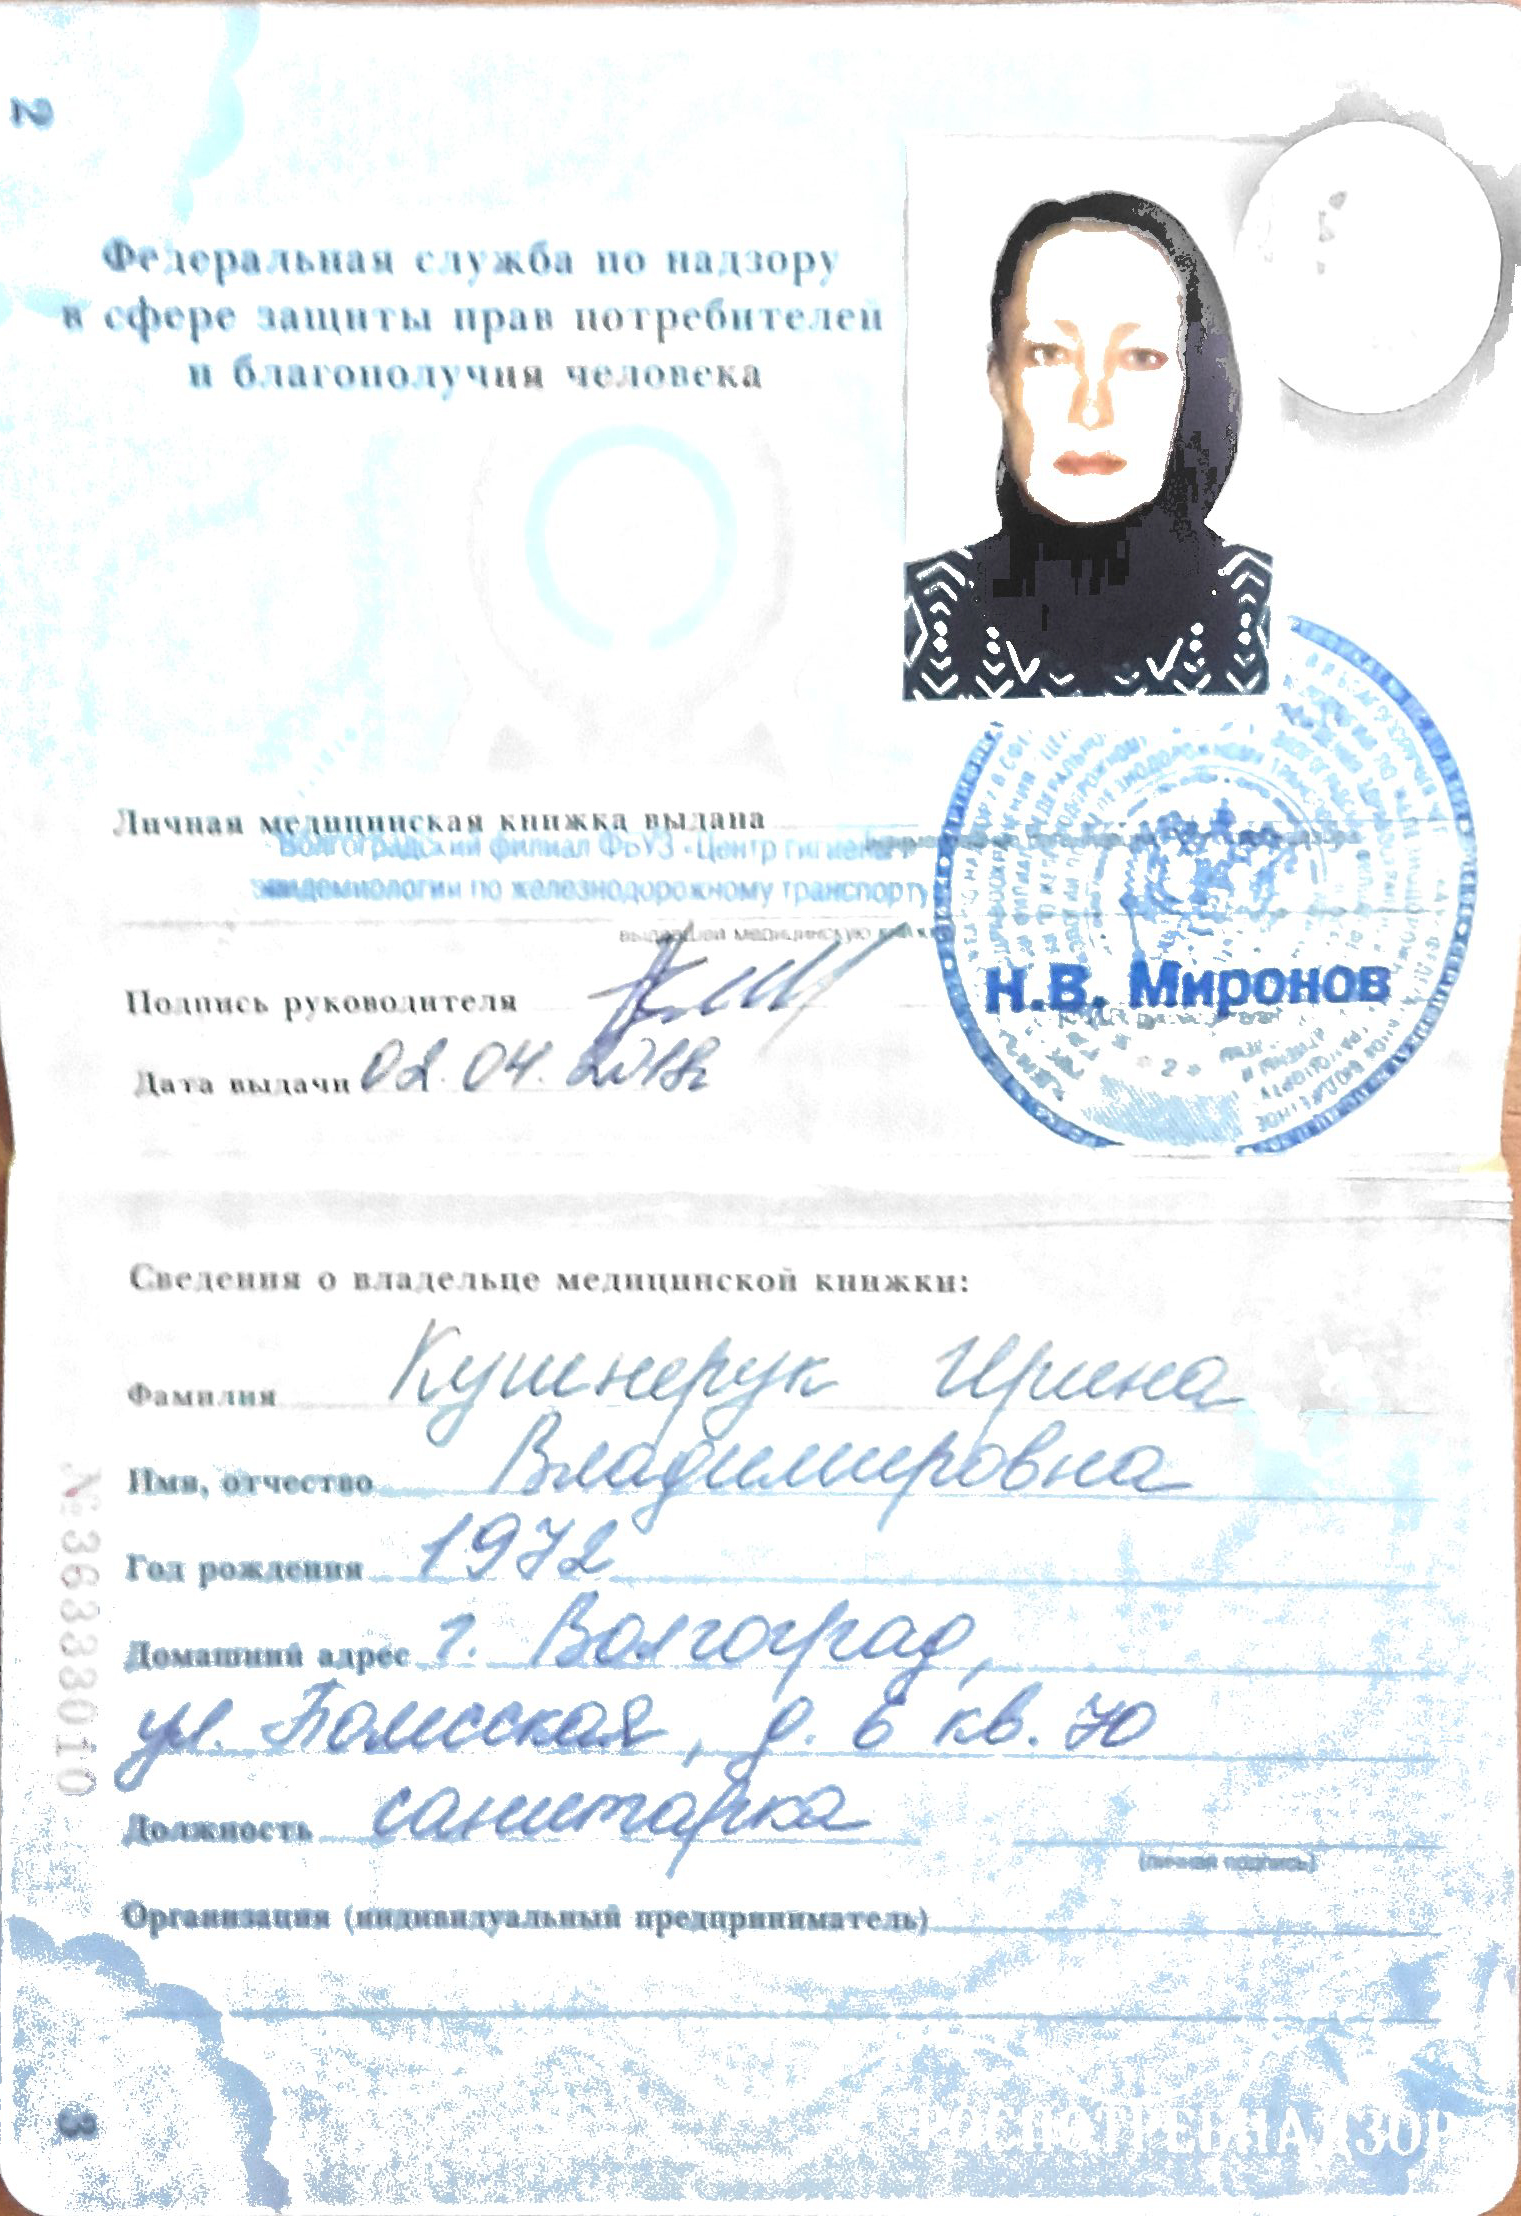 2
Федеральная служба по надзору
в сфере защиты прав потребителей
и благополучия человека
Личная медицинская книжка выдана
Волгоградский филиал ФБУЗ «Центр гигиены и
эпидемиологии по железнодорожному транспорту
выдавшей медицинскую
Подпись руководителя
Н.В. Миронов
Дата выдачи 02.04.2018г
Сведения о владельце медицинской книжки:
Фамилия Кушнерук Ирина
Имя, отчество Владимировна
Год рождения 1972
Домашний адрес г. Волгоград,
ул. д. 6 кв. 70
Должность санитарка
(личная подпись)
Организация (индивидуальный предприниматель)
№ 36333010
3
РОСПОТРЕБНАДЗОР